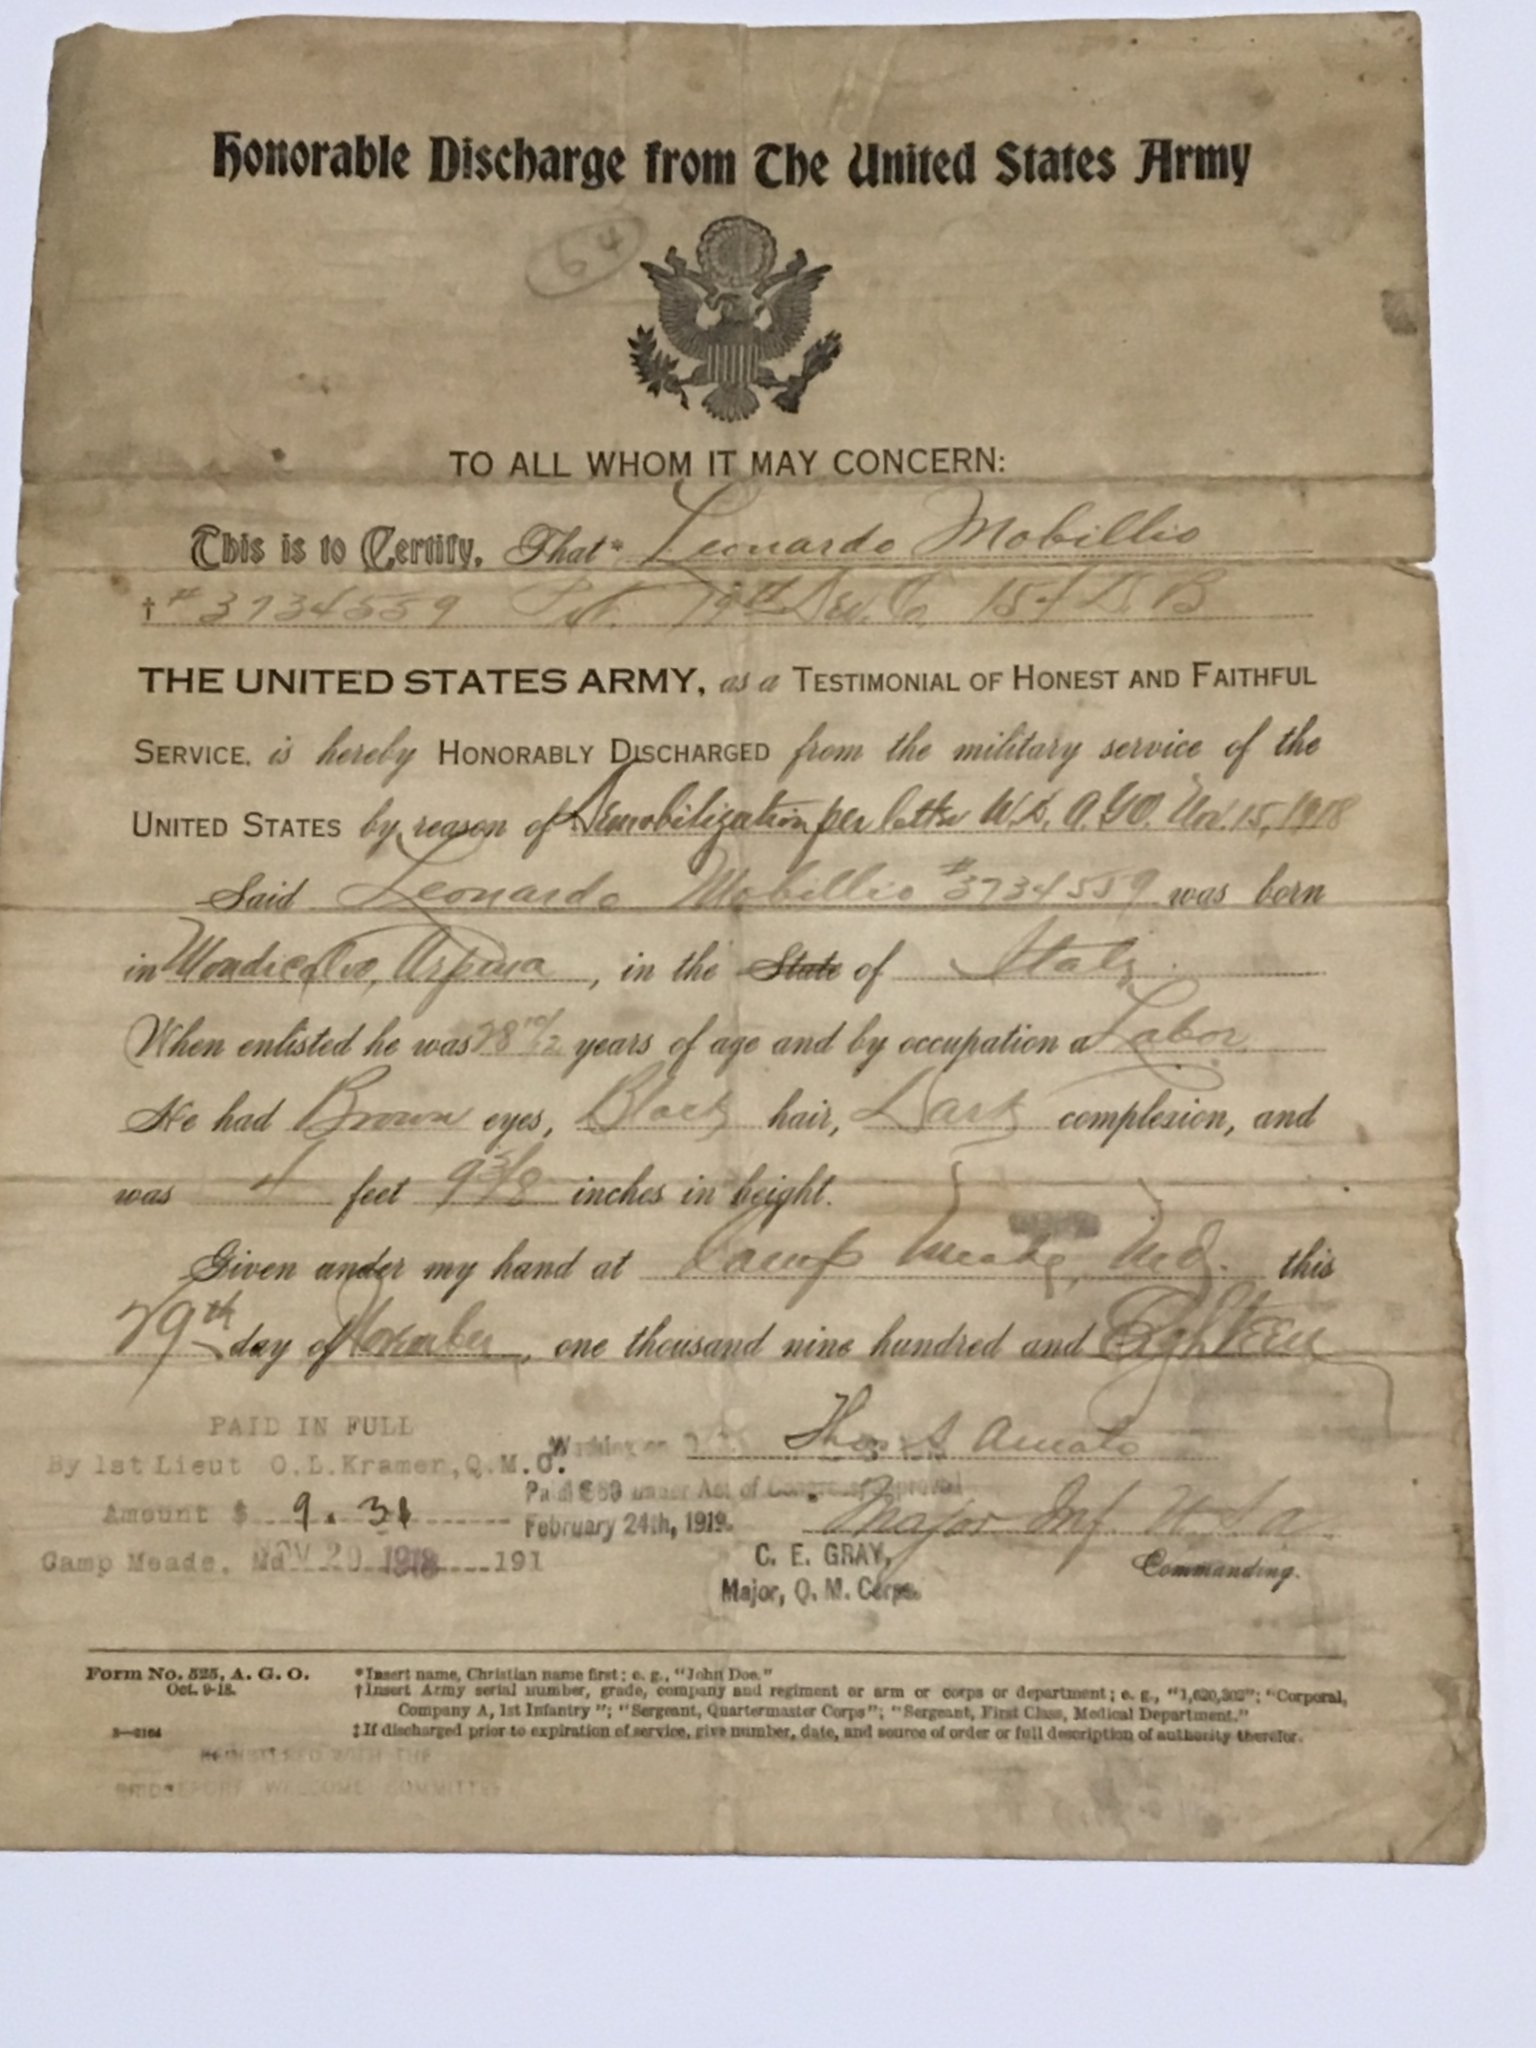 Honorable Discharge from The United States Army
64
TO ALL WHOM IT MAY CONCERN:
This is to Certify, That* Leonardo Mobillio
† # 3734559 Pvt. 79th Dev. Co. 154 D B
THE UNITED STATES ARMY, as a TESTIMONIAL OF HONEST AND FAITHFUL
SERVICE, is hereby HONORABLY DISCHARGED from the military service of the
UNITED STATES by reason of Demobilization per letter W.D. A.G.O. Nov. 15, 1918
Said Leonardo Mobillio # 3734559 was born
in , in the State of Italy
When enlisted he was 28 10/12 years of age and by occupation a Labor
He had Brown eyes, Black hair, Dark complexion, and
was 4 feet 9 3/8 inches in height.
Given under my hand at Camp Meade, Md. this
29th day of November, one thousand nine hundred and Eighteen
PAID IN FULL
By 1st Lieut O.L.Kramer, Q.M.C.
Amount $ 9.31
Camp Meade, Md NOV 20 1918 191
Washington
Paid $60 under Act of Congress approval
February 24th, 1919.
C. E. GRAY,
Major, Q. M. Corps.
Thos S Amato
Major Inf. U.S.A.
Commanding.
Form No. 525, A. G. O.
Oct. 9-18.
3—2164
*Insert name, Christian name first; e. g., "John Doe."
†Insert Army serial number, grade, company and regiment or arm or corps or department; e. g., "1,620,302"; "Corporal,
Company A, 1st Infantry"; "Sergeant, Quartermaster Corps"; "Sergeant, First Class, Medical Department."
‡If discharged prior to expiration of service, give number, date, and source of order or full description of authority therefor.
REGISTERED WITH THE
BRIDGEPORT WELCOME COMMITTEE